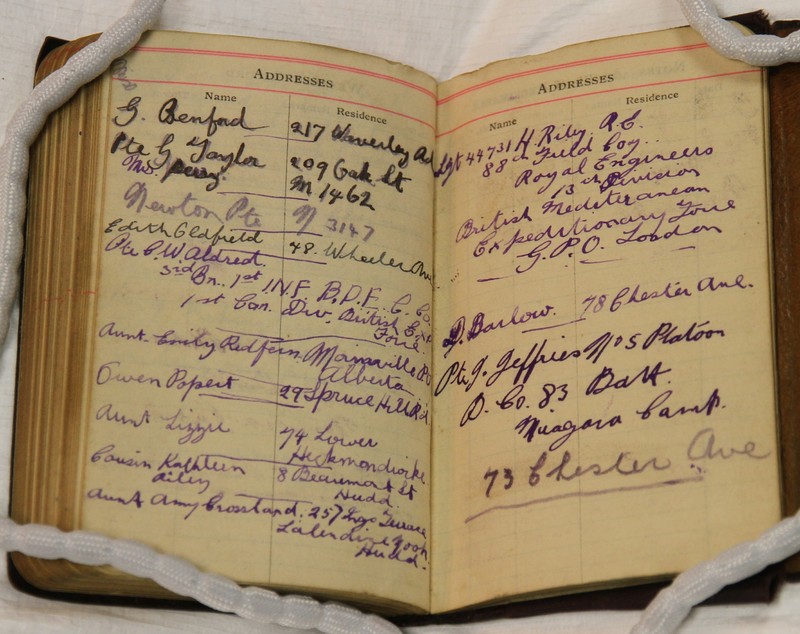 ADDRESSES
Name Residence
G. Benford 217 Waverley Rd
Pte G Taylor 209 Oak St
Mrs. Perry. M 1462
Newton Pte N 3147
Edith Oldfield 48. Wheeler Ave
Pte C. W Aldred.
3rd Bn., 1st INF B.D.E. C. Co.
1st Can. Div. British Exp
Force
Aunt. Emily Redfern. Mannville PO
Alberta
Owen Popert 29 Spruce Hill Rd
Aunt Lizzie 74 Lower
Heckmondwike
Cousin Kathleen 8 Beaumont St
Riley Hudd.
Aunt Amy Crosland. 257 Terrace
Lalendine Nook
Hudd.
ADDRESSES
Name Residence
Sgt 44731 H. Riley. R.E.
88th Field Coy.
Royal Engineers
13th Division
British Mediteranean
Expeditionary Force
G.P.O. London
D. Barlow. 78 Chester Ave.
Pte. J. Jeffries No 5 Platoon
D. Co. 83 Batt.
Niagara Camp.
73 Chester Ave